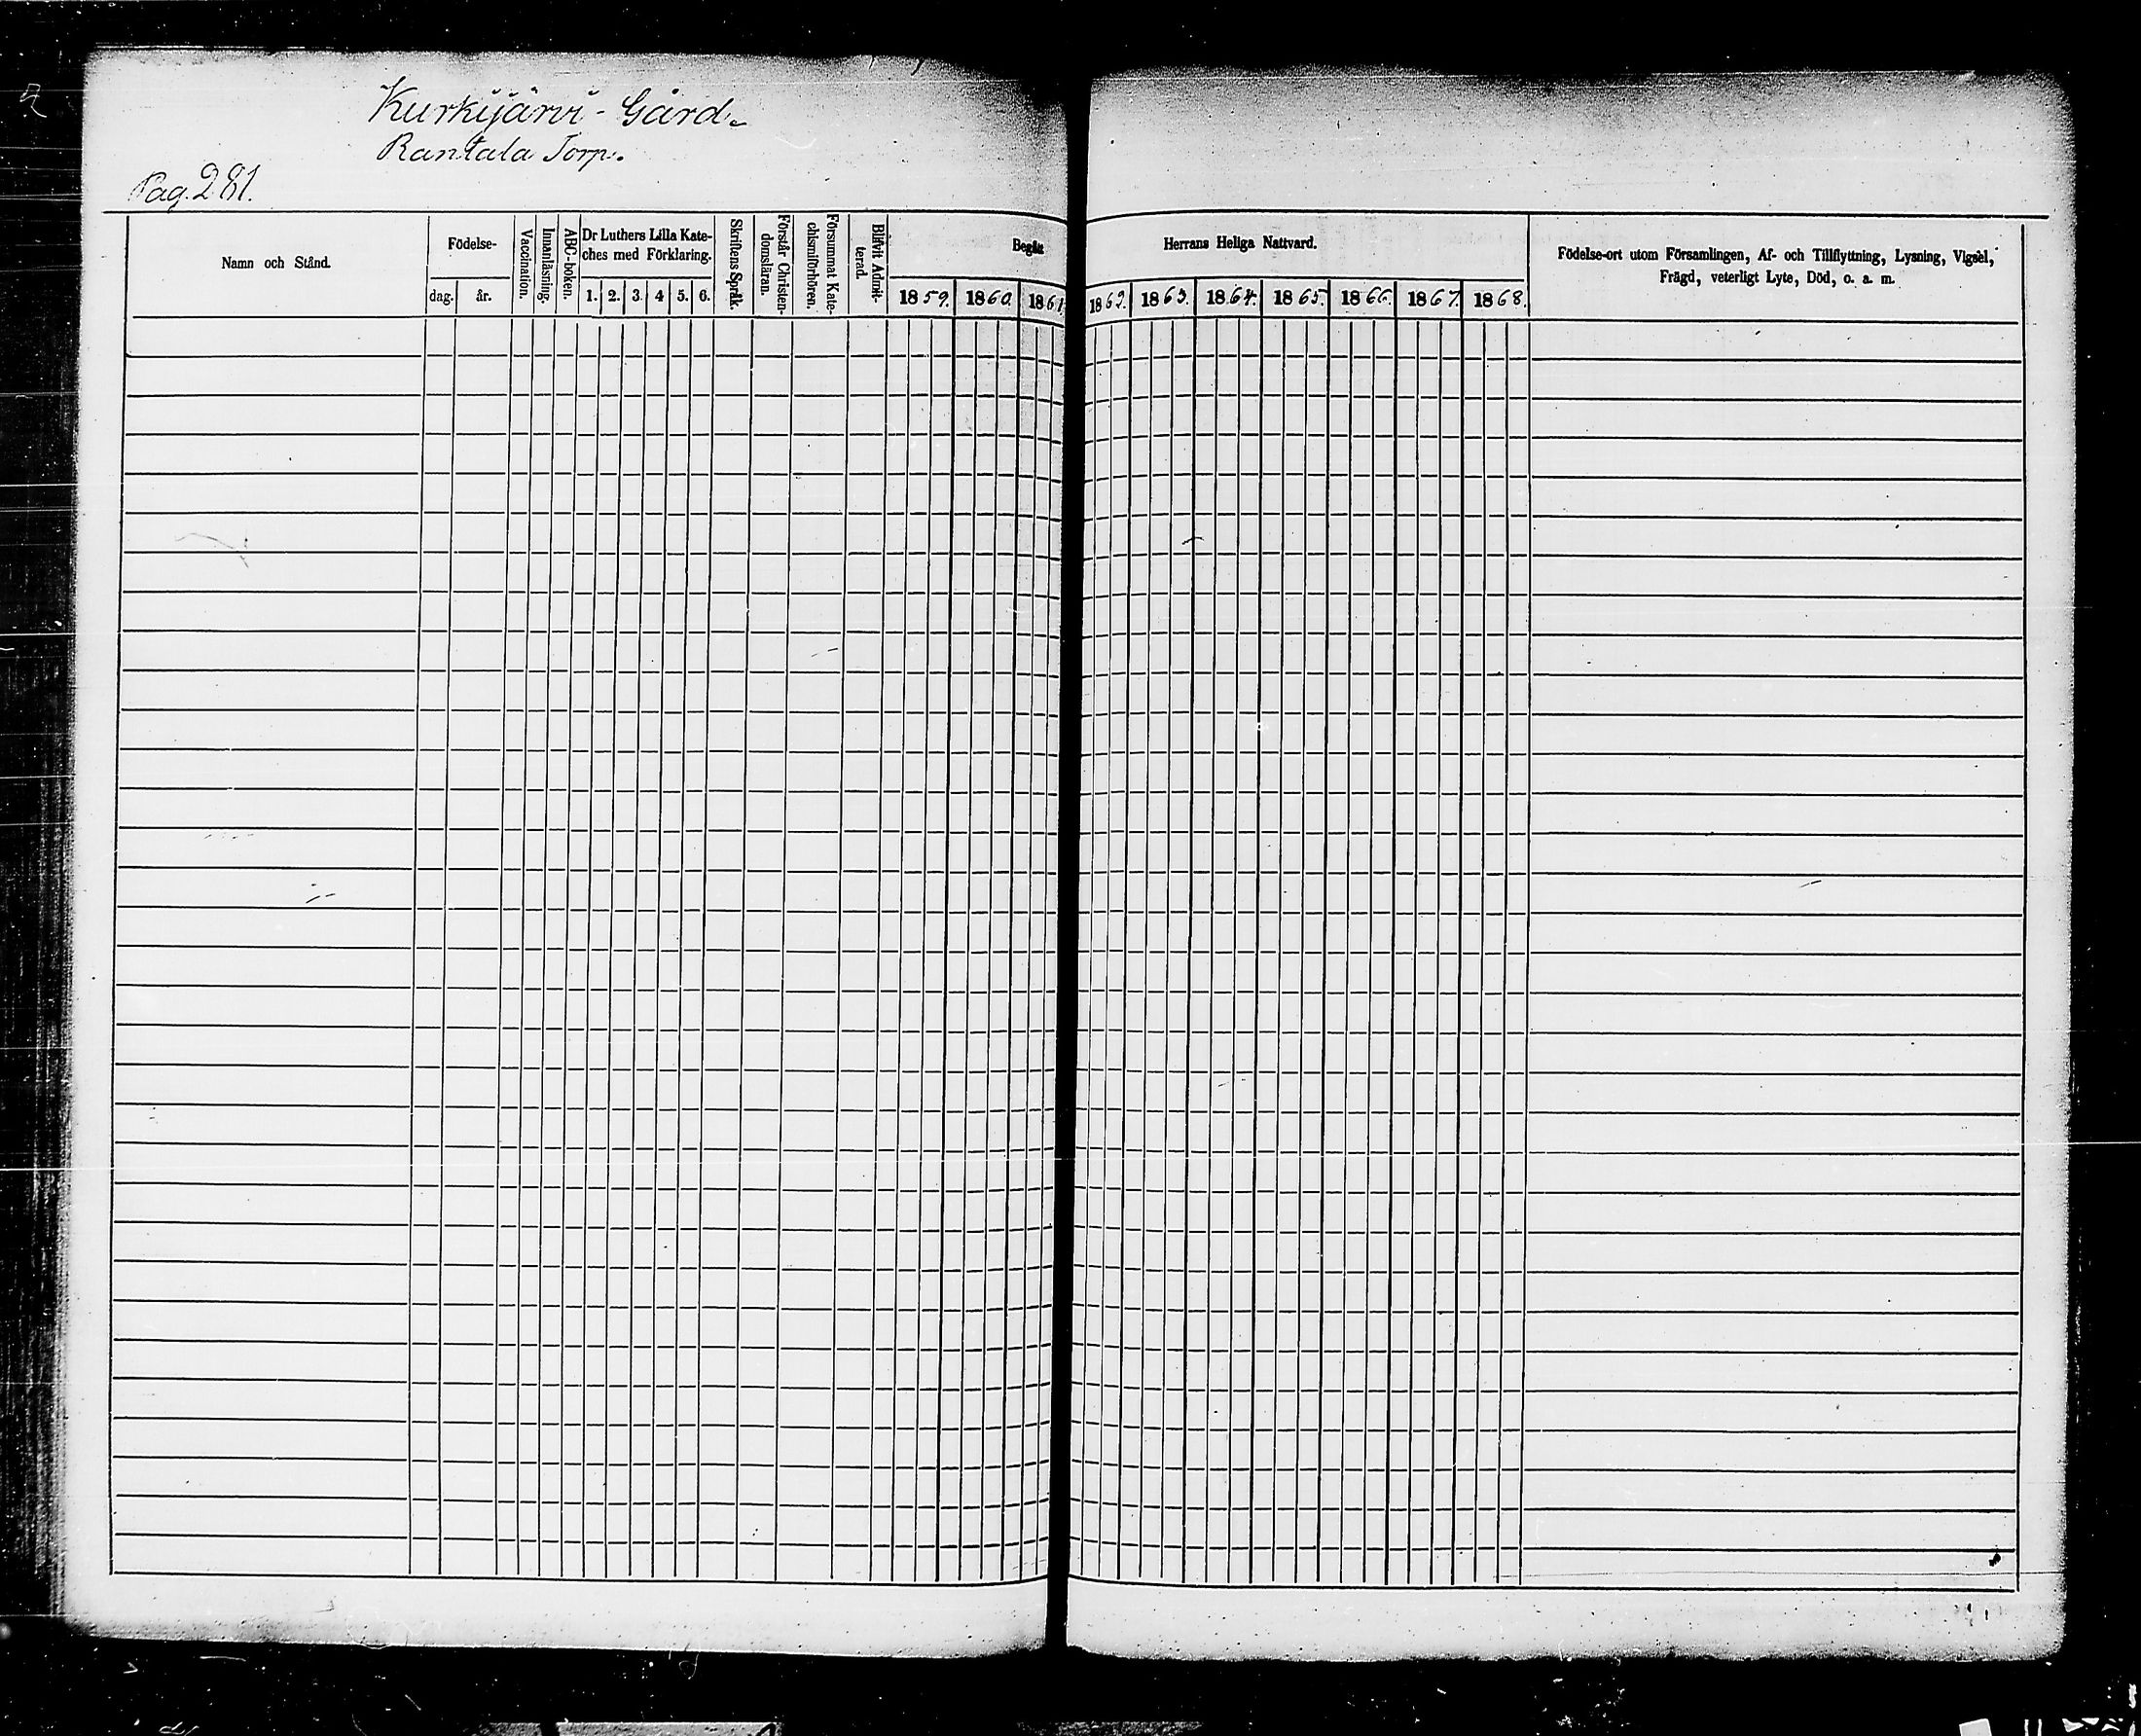 Kurkijärvi-Gård.
Rantala Torp.
Pag. 281.
Namn och Stånd.
Födelse-
dag. år.
Vaccination.
Innanläsning.
ABC-boken.
Dr Luthers Lilla Kate-
ches med Förklaring.
1. 2. 3. 4 5. 6.
Skriftens Språk.
Förstår Christen-
domsläran.
Försummat Kate-
chismiförhören.
Blifvit Admit-
terad.
Begått Herrans Heliga Nattvard.
1859. 1860. 1861. 1862. 1863. 1864. 1865. 1866. 1867. 1868.
Födelse-ort utom Församlingen, Af- och Tillflyttning, Lysning, Vigsel,
Frägd, veterligt Lyte, Död, o. a. m.